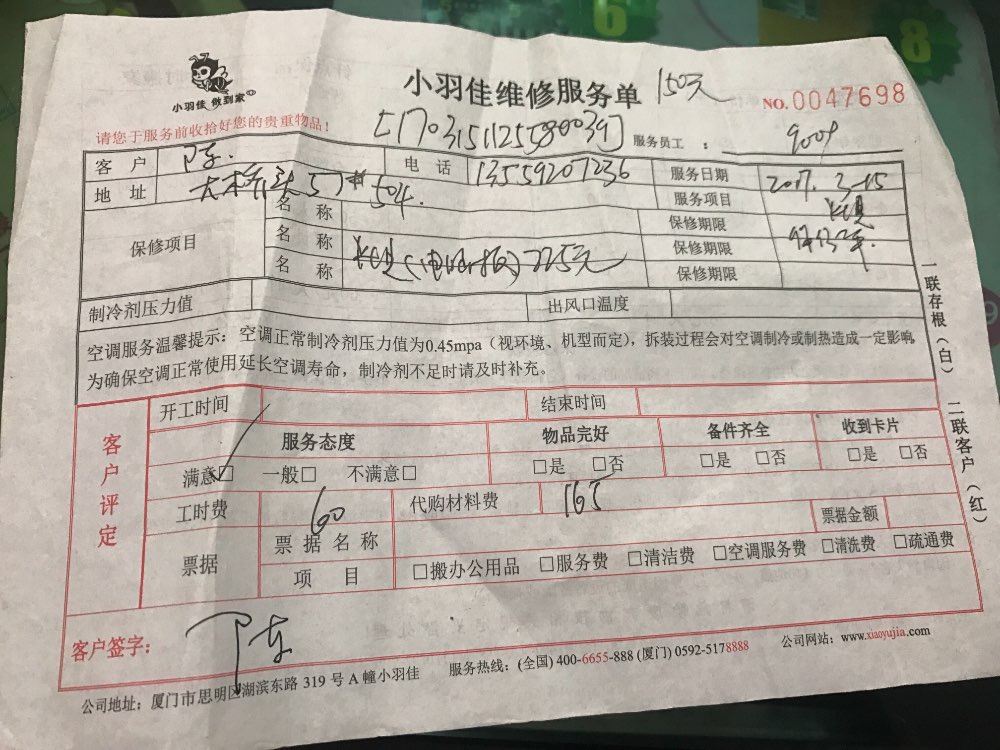 小羽佳 做到家
小羽佳维修服务单 150元
NO.0047698
请您于服务前收拾好您的贵重物品!
[1703151125580039] 服务员工 : 9009
客户 卞东. 电话 13559207236 服务日期 2017. 3-15
地址 大木桥头57# 504. 服务项目
保修项目 名称 保修期限
名称 (电路板) 225元 保修期限
名称 保修期限
制冷剂压力值 出风口温度
空调服务温馨提示:空调正常制冷剂压力值为0.45mpa(视环境、机型而定),拆装过程会对空调制冷或制热造成一定影响
为确保空调正常使用延长空调寿命,制冷剂不足时请及时补充。
一联存根(白) 二联客户(红)
客户评定
开工时间 结束时间
服务态度 物品完好 备件齐全 收到卡片
满意☑ 一般□ 不满意□ □是 □否 □是 □否 □是 □否
工时费 60 代购材料费 165
票据 票据名称 票据金额
项目 □搬办公用品 □服务费 □清洁费 □空调服务费 □清洗费 □疏通费
客户签字: 卞东
公司地址:厦门市思明区湖滨东路 319 号 A 幢小羽佳 服务热线:(全国) 400-6655-888 (厦门) 0592-5178888 公司网站:www.xiaoyujia.com